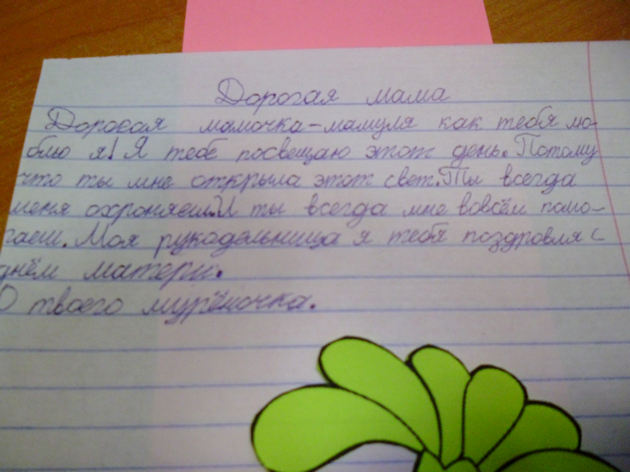 Дорогая мама
Дорогая мамочка-мамуля как тебя лю-
блю я! Я тебе посвещаю этот день. Потому
что ты мне открыла этот свет. Ты всегда
меня охроняеш. И ты всегда мне вовсём помо-
гаеш. Моя рукодельница я тебя поздровля с
днём матери.
О твоего мурёночка.